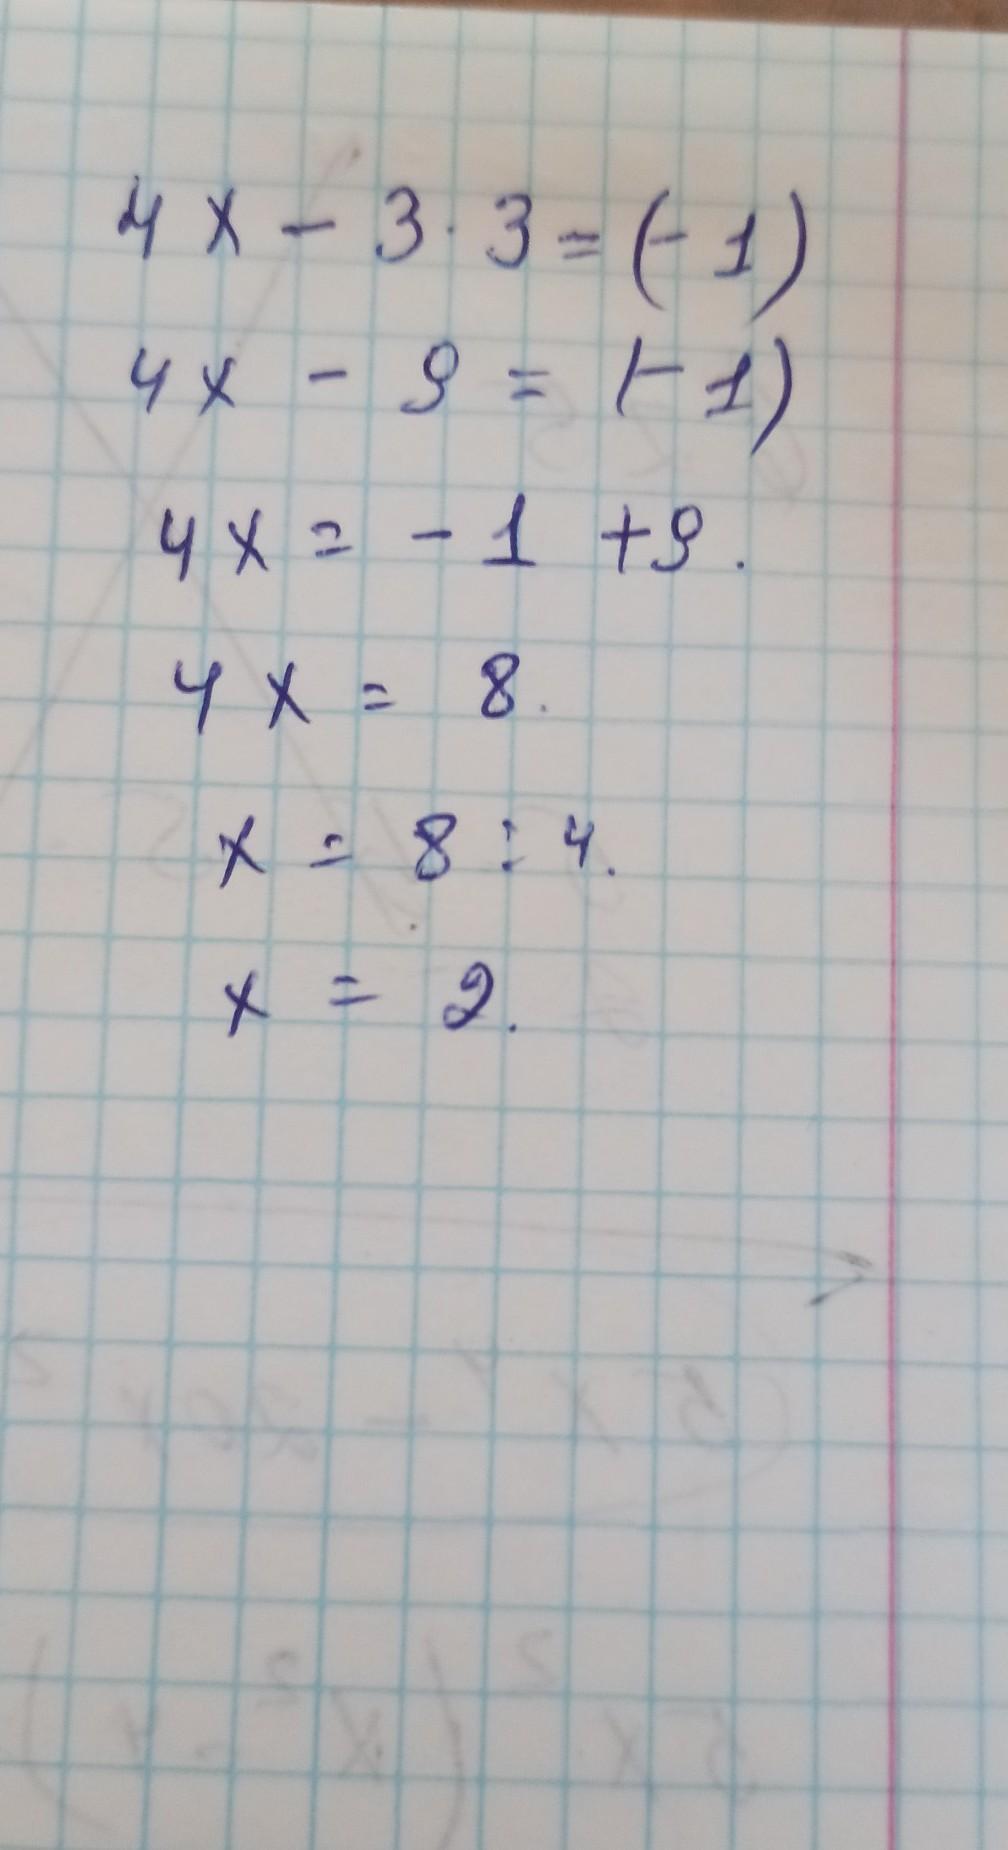 4x - 3 · 3 = (-1)
4x - 9 = (-1)
4x = - 1 + 9.
4x = 8.
x = 8 : 4.
x = 2.